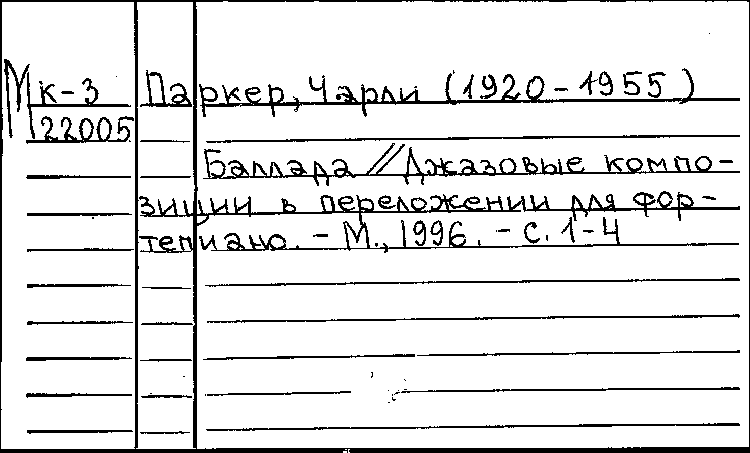 Мк-3 Паркер, Чарли (1920-1955)
22005
Баллада // Джазовые компо-
зиции в переложении для фор-
тепиано. - М., 1996. - с. 1-4